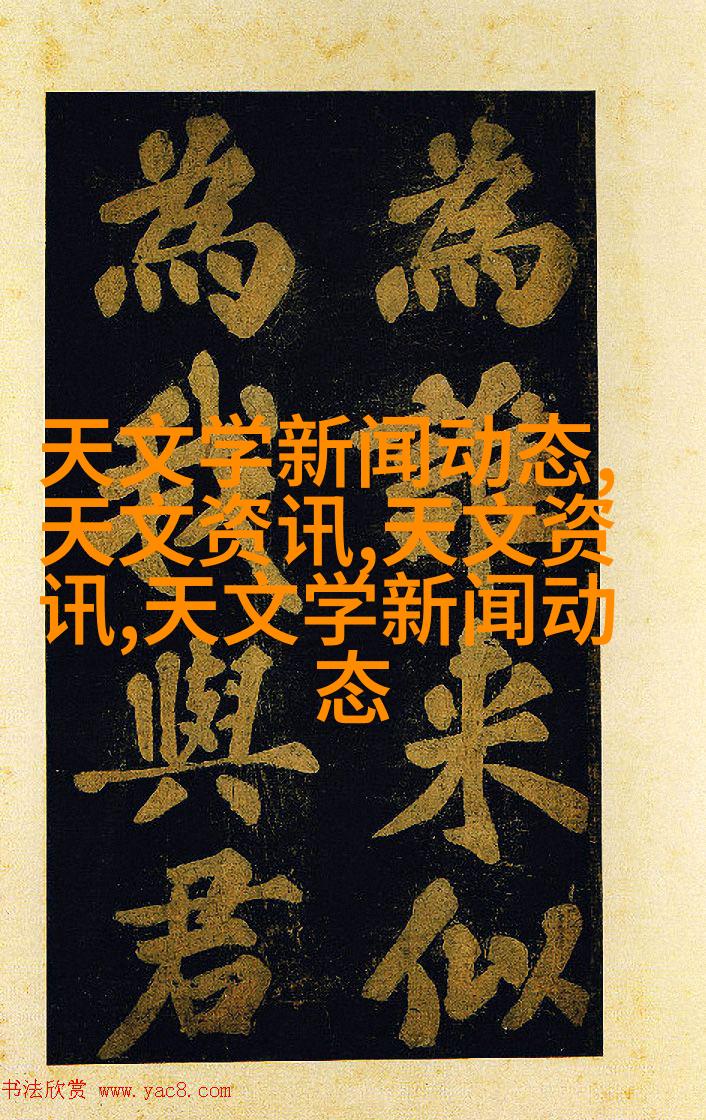 天文学新闻动态,
天文资讯,天文资
讯,天文学新闻动
态
為米似
為我與君
书法欣赏 www.yac8.com